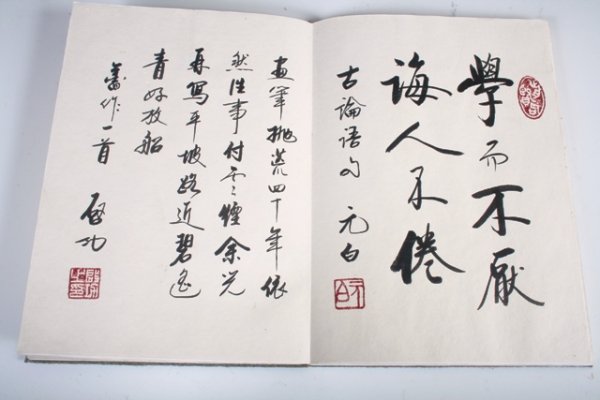 學而不厭
誨人不倦
古論語句 元白
元白
畫筆拋荒四十年依
然往事付云煙余光
再寫平坡路近碧遙
青好放船
舊作一首 啟功
啟功之印